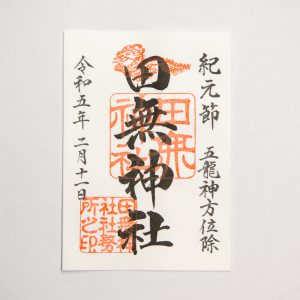 紀元節 五龍神方位除
田無神社
令和五年二月十一日
田無神社
田無神社社務所之印